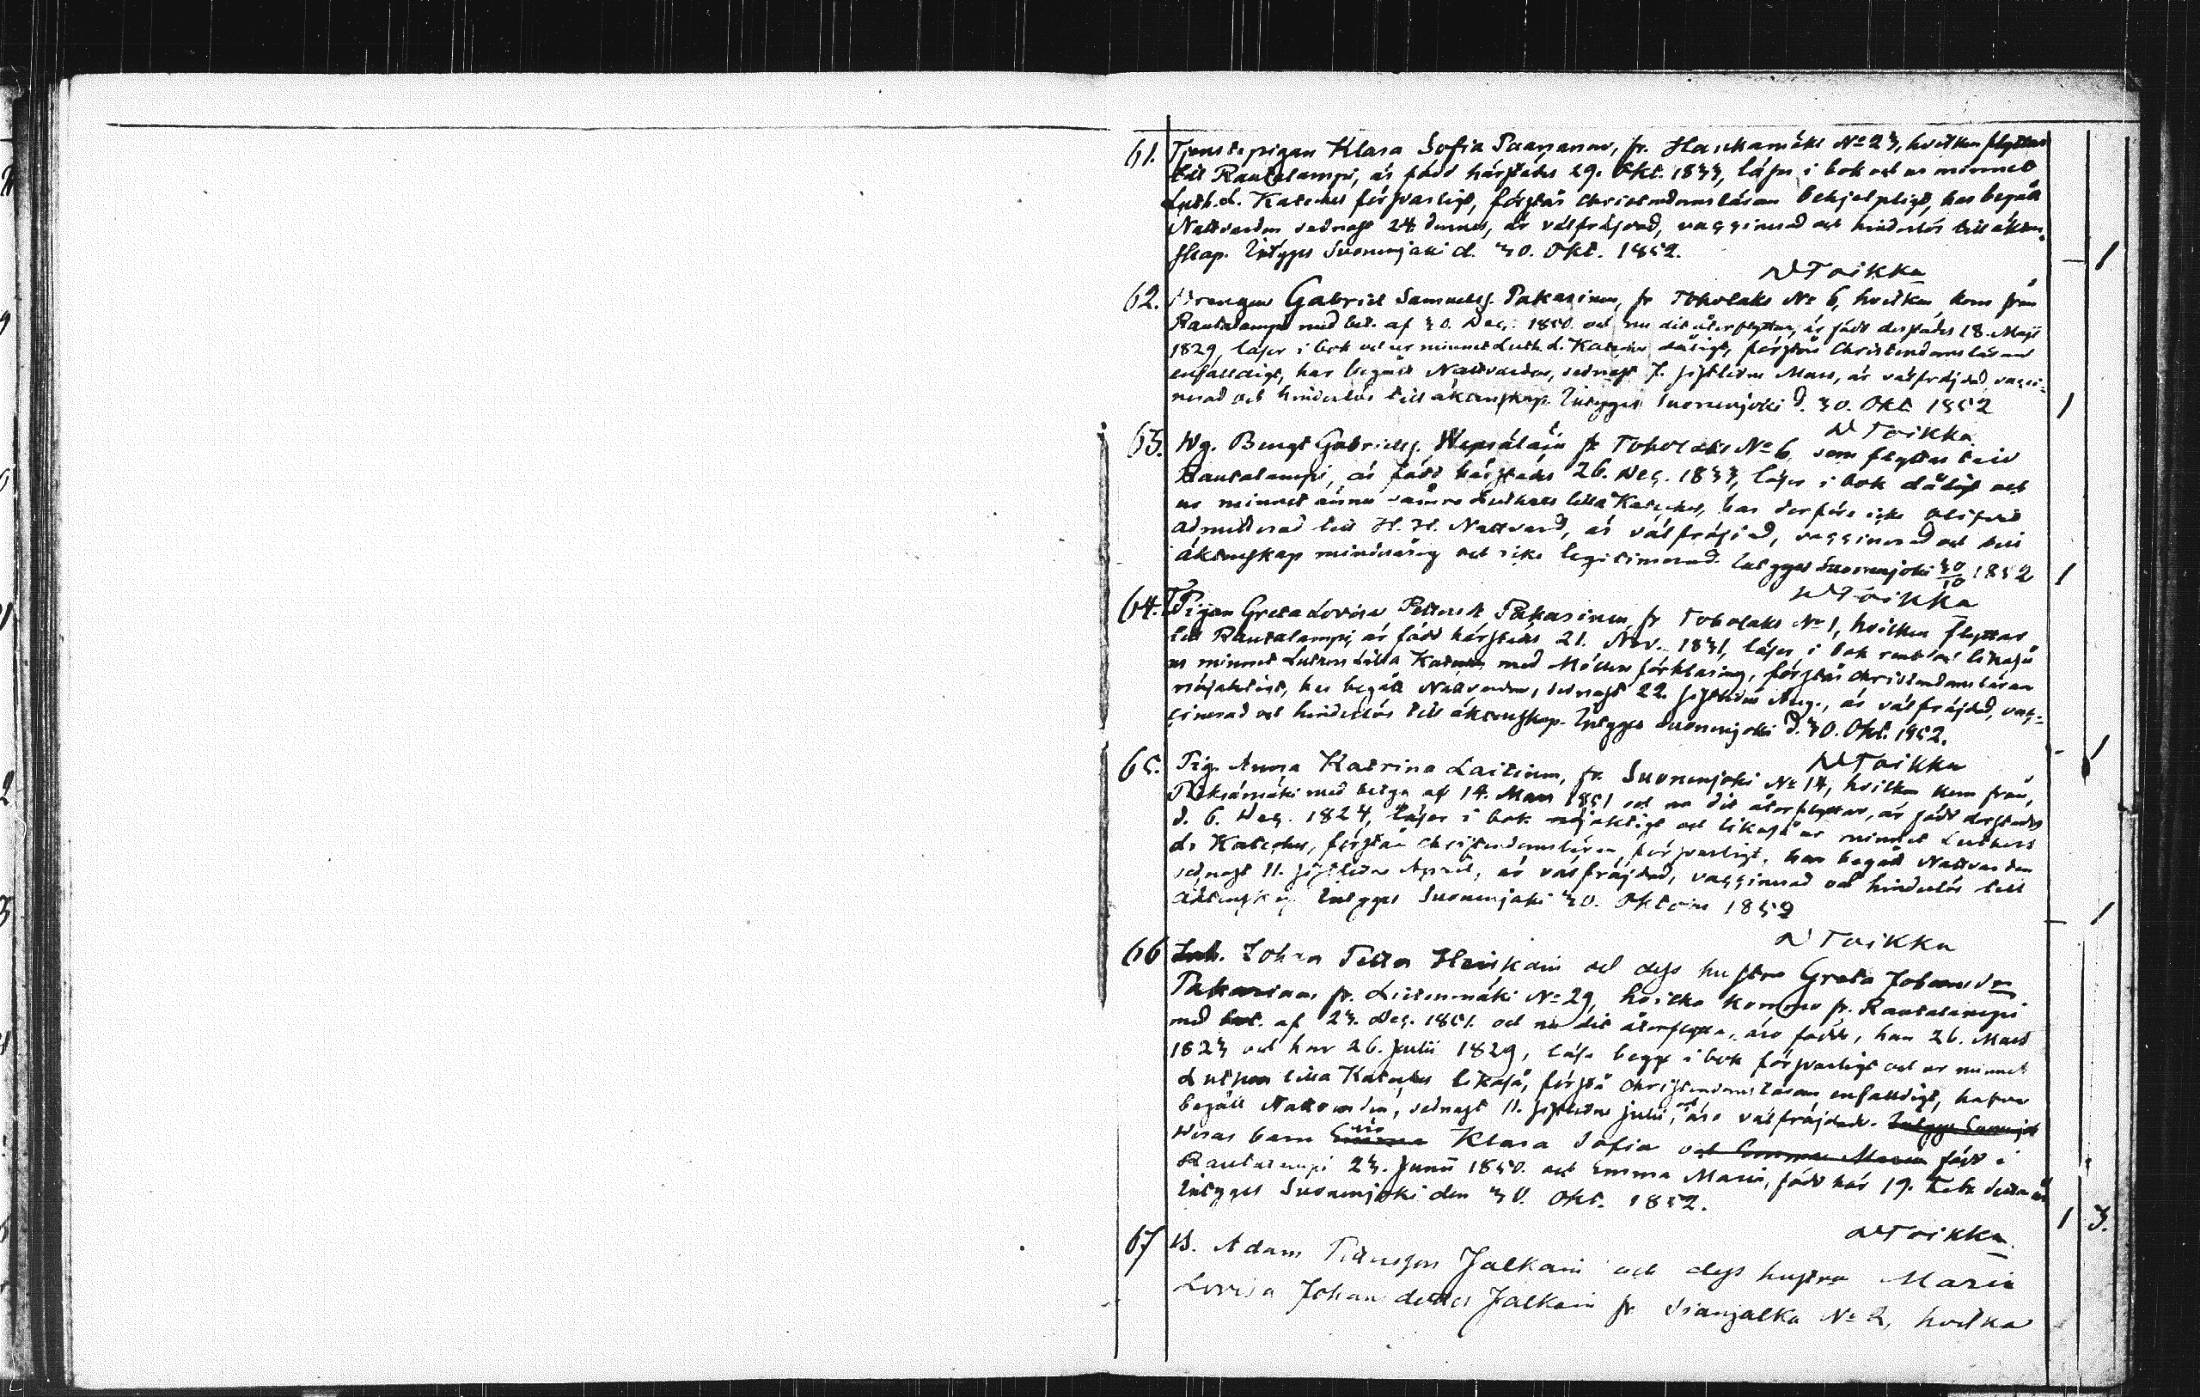 61. Tjenstepigan Klara Sofia Paananen, fr. Haukamäki No 23, hvilken flyttar
till Rautalampi, är född härstädes 29. Okt. 1833, läser i bok och ur minnet
Luth. L. Kateches försvarligt, förstår christendomsläran behjelpligt, har begått
Nattvarden sednast 24 dennes, är välfräjdad, vaccinerad och hinderlös till äkten-
skap. Intygges Suonenjoki d. 30. Okt. 1852.
– 1
N Toikka
62. Drengen Gabriel Samuelss. Pakarinen, fr Toholaks No 6, hvilken kom från
Rautalampi med bet. af 30. Dec. 1850. och nu dit återflyttar, är född derstädes 18. Maji
1829, läser i bok och ur minnet Luth. L. Kateches dåligt, förstår Christendomsläran
enfaldigt, har begått Nattvarden, sednast 7. sistlidne Mars, är välfräjdad, vacci-
nerad och hinderlös till äktenskap. Intygges Suonenjoki d. 30. Okt 1852
1
N Toikka
63. Ng. Bengt Gabrielss. fr Toholaks No 6, som flyttar till
Rautalampi, är född härstädes 26. Dec. 1833, läser i bok dåligt och
ur minnet ännu sämre Luthers lilla Kateches, har derföre icke blifvit
admitterad till H. H. Nattvard, är välfräjdad, vaccinerad och till
äktenskap minderårig och icke legitimerad. Intygges Suonenjoki 30/10 1852
1
N Toikka
64. Pigan Greta Lovisa Pettersdr Pakarinen, fr Toholaks No 1, hvilken flyttar
till Rautalampi, är född härstädes 21. Nov. 1831, läser i bok rent och likaså
ur minnet Luthers Lilla Kateches med Möllers förklaring, förstår christendomsläran
nöjaktigt, har begått Nattvarden, sednast 22. sistlidne Aug., är välfräjdad, vac-
cinerad och hinderlös till äktenskap. Intygges Suonenjoki d. 30. Okt. 1852.
– 1
N Toikka
65. Pig. Anna Katrina Laitinen, fr. Suonenjoki No 14, hvilken kom från
Pieksämäki med betyg af 14. Mars 1851 och nu dit återflyttar, är född derstädes
d. 6. Dec. 1824, läser i bok nöjaktigt och likaså ur minnet Luthers
L. Kateches, förstår christendomsläran försvarligt, har begått Nattvarden
sednast 11. sistlidne April, är välfräjdad, vaccinerad och hinderlös till
äktenskap. Intygges Suonenjoki 30. Oktober 1852
– 1
N Toikka
66 Inh. Johan Petter Heiskain och dess hustru Greta Johansdr
Pakarinen fr. Lietenmäki No 29, hvilka kommo fr. Rautalampi
med bet. af 23. Dec. 1851. och nu dit återflytta, äro födde, han 26. Mars
1823 och hon 26. Julii 1829, läsa begge i bok försvarligt och ur minnet
Luthers lilla Kateches likaså, förstå christendomsläran enfaldigt, hafva
begått Nattvarden, sednast 11. sistlidne Julii, och äro välfräjdade.
Deras barn Klara Sofia född i
Rautalampi 23. Junii 1850. och Emma Maria, född här 19. Febr detta år
Intygges Suonenjoki den 30. Okt. 1852.
1 3.
N Toikka
67 B. Adam Petterson Jalkain och dess hustru Maria
Lovisa Johansdotter Jalkain fr Sianjalka No 2, hvilka